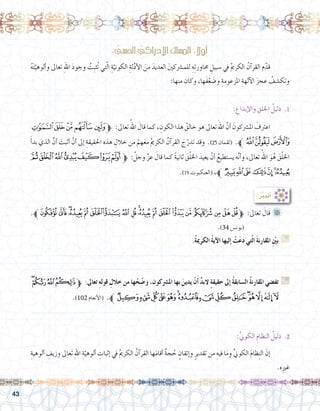 أولاً: المسلك الإدراكي الحسّي
قدّم القرآن الكريم في سبيل محاورته للمشركين العديد من الأدلة الكونية التي تُثبت وجود الله تعالى وألوهيّته
وتكشف عجز الآلهة المزعومة وضعفها، وكان منها:
1. دليل الخلق والإبداع:
اعترف المشركون أنّ الله تعالى هو خالق هذا الكون، كما قال الله تعالى: ﴿ وَلَئِن سَأَلْتَهُم مَّنْ خَلَقَ ٱلسَّمَٰوَٰتِ
وَٱلْأَرْضَ لَيَقُولُنَّ ٱللَّهُ ﴾. (لقمان 25). وقد تدرّج القرآن الكريم معهم من خلال هذه الحقيقة إلى أنْ أثبت أنّ الذي بدأ
الخلق هو الله تعالى، وأنّه يستطيع أن يعيد الخلق ثانية كما قال عزّ وجلّ: ﴿ أَوَلَمْ يَرَوْا۟ كَيْفَ يُبْدِئُ ٱللَّهُ ٱلْخَلْقَ ثُمَّ
يُعِيدُهُۥٓ إِنَّ ذَٰلِكَ عَلَى ٱللَّهِ يَسِيرٌ ﴾، (العنكبوت 19).
أتدبّر
قال تعالى: ﴿ قُلْ هَلْ مِن شُرَكَآئِكُم مَّن يَبْدَؤُا۟ ٱلْخَلْقَ ثُمَّ يُعِيدُهُۥ قُلِ ٱللَّهُ يَبْدَؤُا۟ ٱلْخَلْقَ ثُمَّ يُعِيدُهُۥ فَأَنَّىٰ تُؤْفَكُونَ ﴾.
(يونس 34).
بيّن المقارنة التي دعت إليها الآية الكريمة.
تفضي المقارنة السابقة إلى حقيقة لابدّ أن يدين بها المشركون، وضّحها من خلال قوله تعالى: ﴿ ذَٰلِكُمُ ٱللَّهُ رَبُّكُمْ
لَآ إِلَٰهَ إِلَّا هُوَ خَٰلِقُ كُلِّ شَىْءٍ فَٱعْبُدُوهُ وَهُوَ عَلَىٰ كُلِّ شَىْءٍ وَكِيلٌ ﴾. (الأنعام 102).
2. دليل النظام الكوني:
إنّ النظام الكوني وما فيه من تقدير وإتقان حجّة أقامها القرآن الكريم في إثبات ألوهيّة الله تعالى وزيف ألوهية
غيره.
43